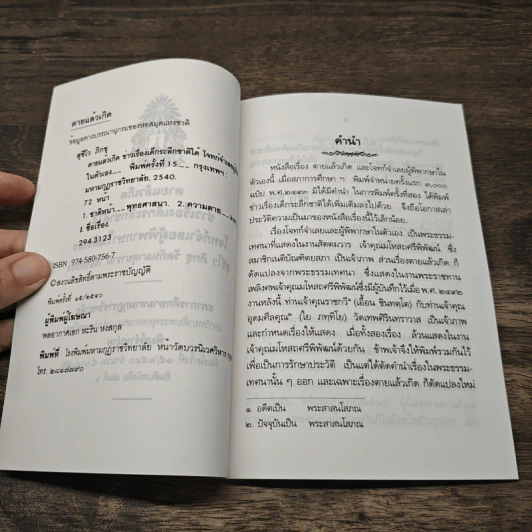 ตายแล้วเกิด
ข้อมูลทางบรรณานุกรมของหอสมุดแห่งชาติ
สุชีโว ภิกขุ
ตายแล้วเกิด ข่าวเรื่องเด็กระลึกชาติได้ โจทก์จำเลยผู้พิพากษา
ในตัวเอง.__ พิมพ์ครั้งที่ 15.__ กรุงเทพฯ :
มหามกุฏราชวิทยาลัย, 2540.
72 หน้า
1. ชาติหน้า__พุทธศาสนา. 2. ความตาย__
I. ชื่อเรื่อง.
294.3123
ISBN 974-580-756-7
©สงวนลิขสิทธิ์ตามพระราชบัญญัติ
พิมพ์ครั้งที่ ๑๕/๒๕๔๐
ผู้พิมพ์ผู้โฆษณา
พลอากาศเอก หะริน หงสกุล
พิมพ์ที่ โรงพิมพ์มหามกุฏราชวิทยาลัย หน้าวัดบวรนิเวศวิหาร
โทร.
คำนำ
หนังสือเรื่อง ตายแล้วเกิด และโจทก์จำเลยผู้พิพากษาใน
ตัวเองนี้ เมื่อสภาการศึกษา ฯ พิมพ์จำหน่ายครั้งแรก ๓,๐๐๐
ฉบับ พ.ศ. มิได้มีคำนำ ในการพิมพ์ครั้งที่สอง ได้พิมพ์
ข่าวเรื่องเด็กระลึกชาติได้เพิ่มเติมลงไปด้วย จึงถือโอกาสเล่า
ประวัติความเป็นมาของหนังสือเรื่องนี้ไว้เล็กน้อย.
เรื่องโจทก์จำเลยและผู้พิพากษาในตัวเอง เป็นพระธรรม-
เทศนาที่แสดงในงานสัตตมวาร เจ้าคุณมโหสถศรีพิพัฒน์ ซึ่ง
สมาชิกเนติบัณฑิตยสภา เป็นเจ้าภาพ ส่วนเรื่องตายแล้วเกิด ก็
ดัดแปลงจากพระธรรมเทศนา ซึ่งแสดงในงานพระราชทาน
เพลิงศพเจ้าคุณมโหสถศรีพิพัฒน์ซึ่งมีผู้บันทึกไว้ เมื่อ พ.ศ.
งานหลังนี้ ท่านเจ้าคุณราชกวี๑ (เอื้อน ชินทตฺโต) กับท่านเจ้าคุณ
อุดมศีลคุณ๒ วัดเทพศิรินทราวาส เป็นเจ้าภาพ
และกำหนดเรื่องให้แสดง เมื่อทั้งสองเรื่อง ล้วนแสดงในงาน
เจ้าคุณมโหสถศรีพิพัฒน์ด้วยกัน ข้าพเจ้าจึงให้พิมพ์รวมกันไว้
เพื่อเป็นการรักษาประวัติ เป็นแต่ได้ตัดคำนำเรื่องในพระธรรม-
เทศนานั้น ๆ ออก และเฉพาะเรื่องตายแล้วเกิด ก็ดัดแปลงใหม่
๑. อดีตเป็น พระสาสนโสภณ
๒. ปัจจุบันเป็น พระสาสนโสภณ